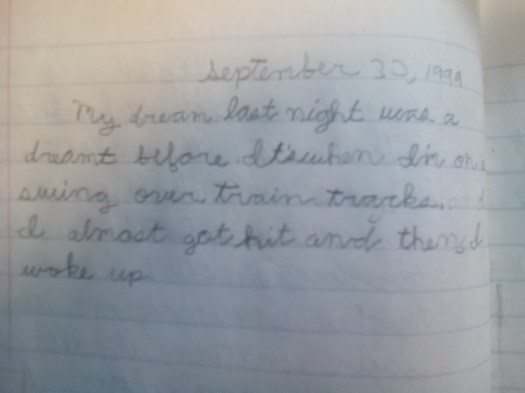 September 30, 1994
My dream last night was a
dreamt before. It's when I'm on
swing over train tracks. and
I almost got hit and then I
woke up